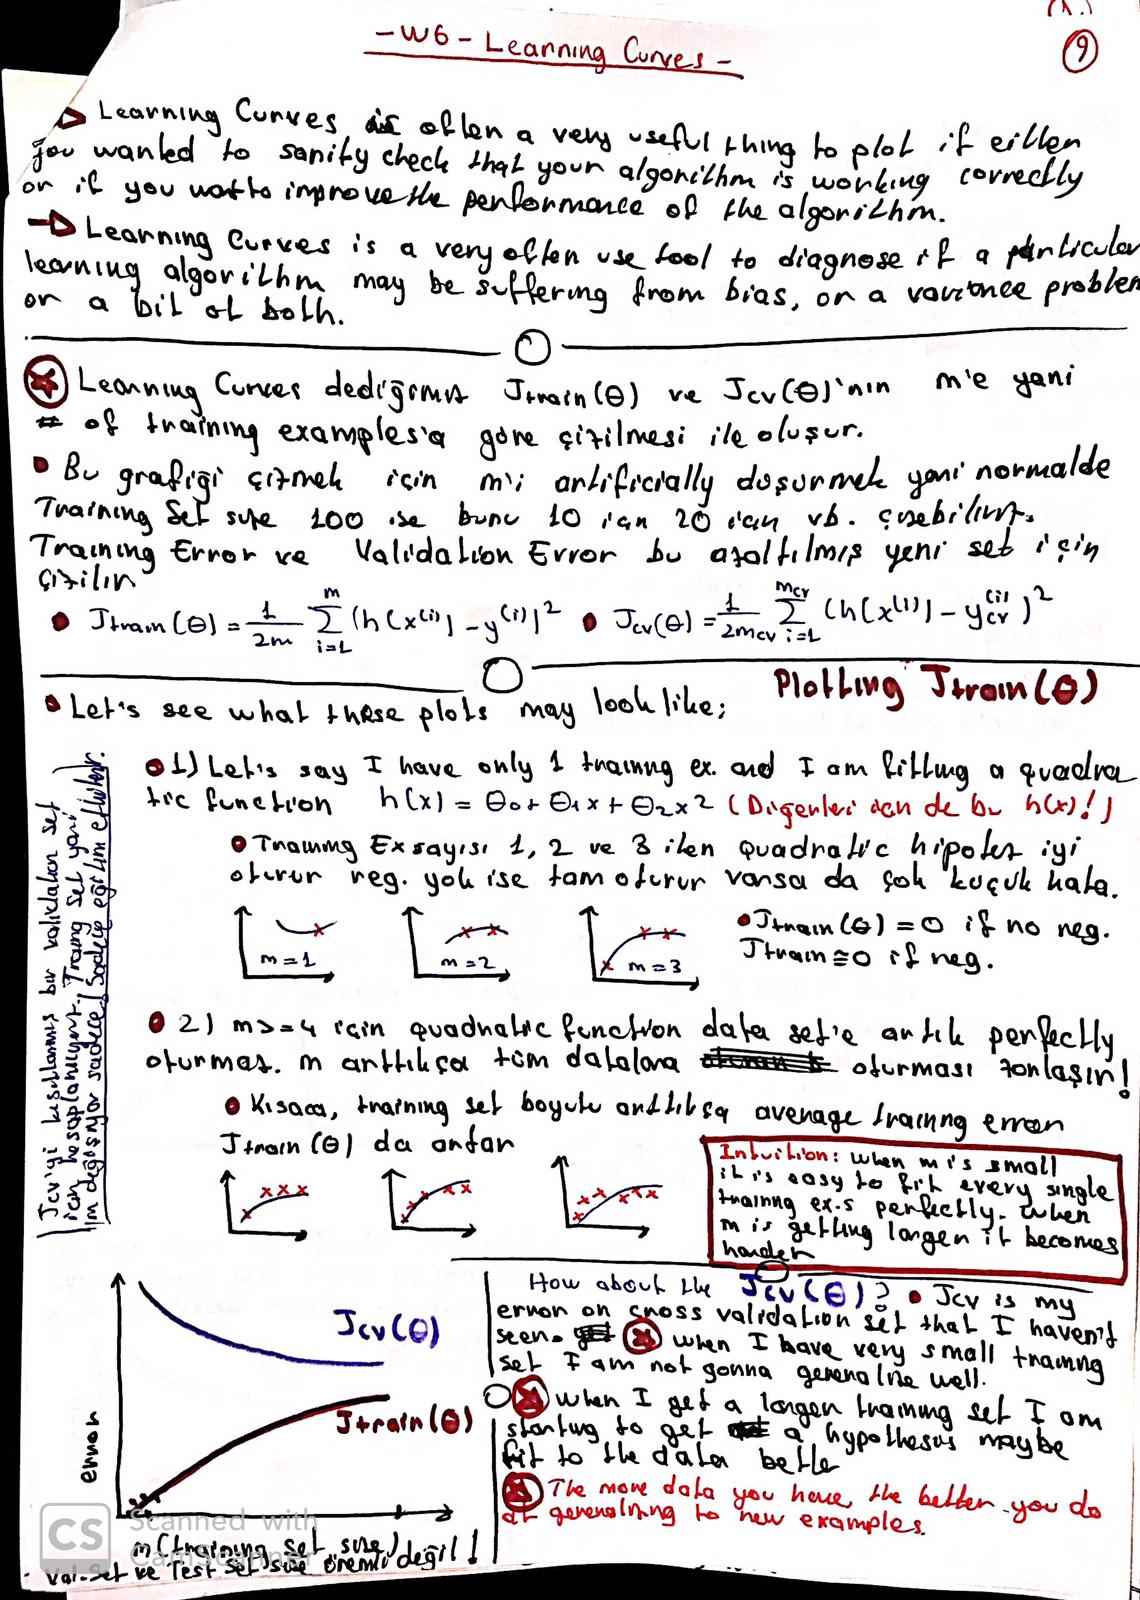 - W6 - Learning Curves -
9
Learning Curves is often a very useful thing to plot if either
you wanted to sanity check that your algorithm is working correctly
or if you wat to improve the performance of the algorithm.
Learning Curves is a very often use tool to diagnose if a particular
learning algorithm may be suffering from bias, or a variance problem
or a bit of both.
Learning Curves dediğimiz Jtrain(θ) ve Jcv(θ)'nın m'e yani
# of training examples'a göre çizilmesi ile oluşur.
Bu grafiği çizmek için m'i artificially düşürmek yani normalde
Training Set size 100 ise bunu 10 için 20 için vb. çizebiliriz.
Training Error ve Validation Error bu azaltılmış yeni set için
çizilir
Jtrain(θ) = 1/2m Σ i=1 m (h(x⁽ⁱ⁾) - y⁽ⁱ⁾)² Jcv(θ) = 1/2mcv Σ i=1 mcv (h(x⁽ⁱ⁾) - ycv⁽ⁱ⁾)²
Plotting Jtrain(θ)
Let's see what these plots may look like;
1) Let's say I have only 1 training ex. and I am fitting a quadra
tic function h(x) = θ0 + θ1x + θ2x² (Diğerleri için de bu h(x)!)
Training Ex sayısı 1, 2 ve 3 iken quadratic hipotez iyi
oturur reg. yok ise tam oturur varsa da çok küçük hata.
m=1 m=2 m=3
Jtrain(θ) = 0 if no reg.
Jtrain ≅ 0 if reg.
2) m>=4 için quadratic function data set'e artık perfectly
oturmaz. m arttıkça tüm datalara oturması zorlaşır!
Kısaca, training set boyutu arttıkça average training error
Jtrain(θ) da artar
Intuition: when m is small
it is easy to fit every single
training ex.s perfectly. when
m is getting larger it becomes
harder
Jcv'yi kısıtlanmış bir validation set
için hesaplamıyoruz. Training Set yani
m değişiyor sadece! Sadece eğitim etkilenir.
Jcv(θ)
Jtrain(θ)
error
m (training set size)
Val. Set ve Test Set size önemli değil!
How about the Jcv(θ)? Jcv is my
error on cross validation set that I haven't
seen. when I have very small training
set I am not gonna generalize well.
when I get a larger training set I am
starting to get a hypothesis maybe
fit to the data bette
The more data you have the better you do
at generalizing to new examples.
CS
Scanned with
CamScanner